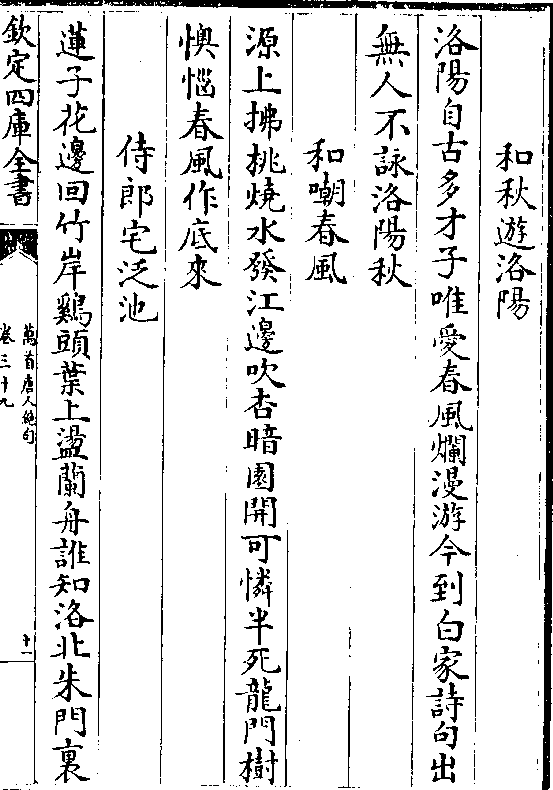 和秋遊洛陽
洛陽自古多才子唯愛春風爛漫游今到白家詩句出
無人不詠洛陽秋
和嘲春風
源上拂桃燒水發江邊吹杏暗園開可憐半死龍門樹
懊惱春風作底來
侍郎宅泛池
蓮子花邊回竹岸鷄頭葉上盪蘭舟誰知洛北朱門裏
欽定四庫全書
萬首唐人絶句
卷三十九
十一